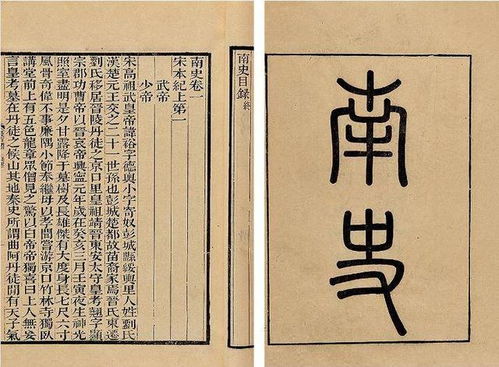 南史
南史目録 終
南史卷一
宋本紀上第一
武帝
少帝
宋高祖武皇帝諱裕字德輿小字寄奴彭城縣綏輿里人姓劉氏
漢楚元王交之二十一世孫也彭城楚都故苗裔家焉晉氏東遷
劉氏移居晉陵丹徒之京口里皇祖靖晉東安太守皇考翹字顯
宗郡功曹帝以晉哀帝興寧元年歲在癸亥三月壬寅夜生神光
照室盡明是夕甘露降于墓樹及長雄傑有大度身長七尺六寸
風骨奇偉不事廉隅小節奉繼母以孝聞嘗游京口竹林寺獨臥
講堂前上有五色龍章眾僧見之驚以白帝帝獨喜曰上人無妄
言皇考墓在丹徒之候山其地秦史所謂曲阿丹徒閒有天子氣